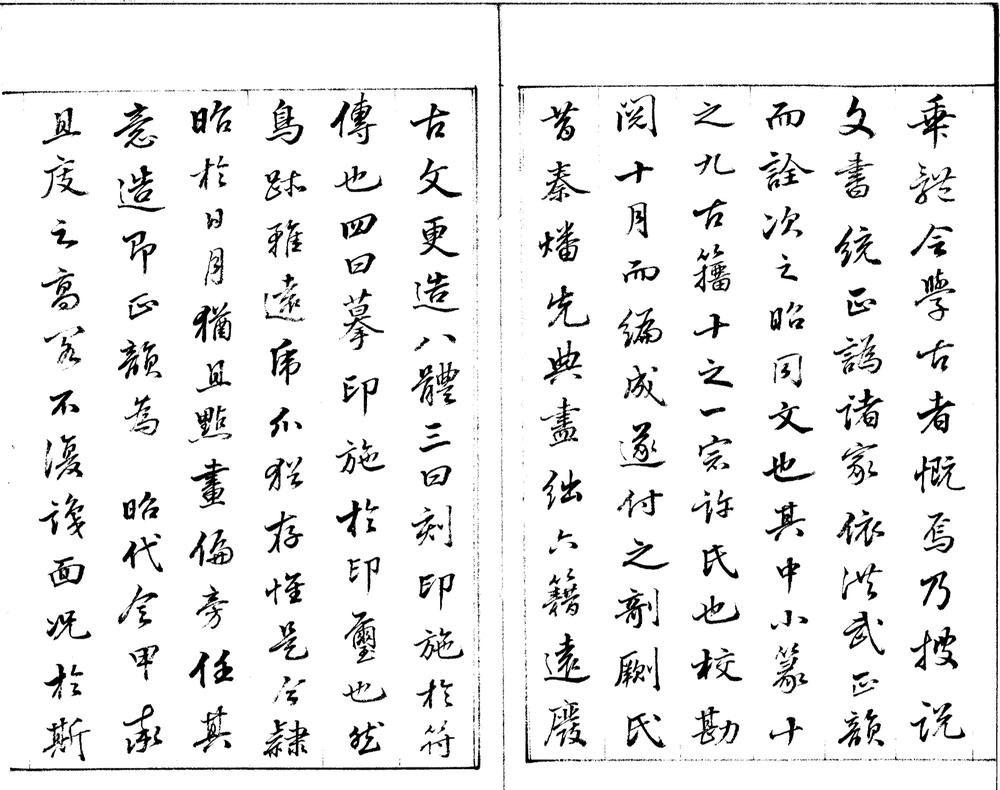 乘謬令學古者慨焉乃搜说
文書统正譌诸家依洪武正韻
而詮次之昭同文也其中小篆十
之九古籀十之一宗许氏也校勘
閲十月而编成遂付之剞劂氏
昔秦燔先典盡绌六籍遠廢
古文更造八體三曰刻印施於符
傳也四曰摹印施於印璽也然
鳥跡雖遠席爪猶存惟是今隸
昭於日月猶且點畫偏旁任其
意造即正韻為 昭代令甲
且度之高阁不復識面况於斯